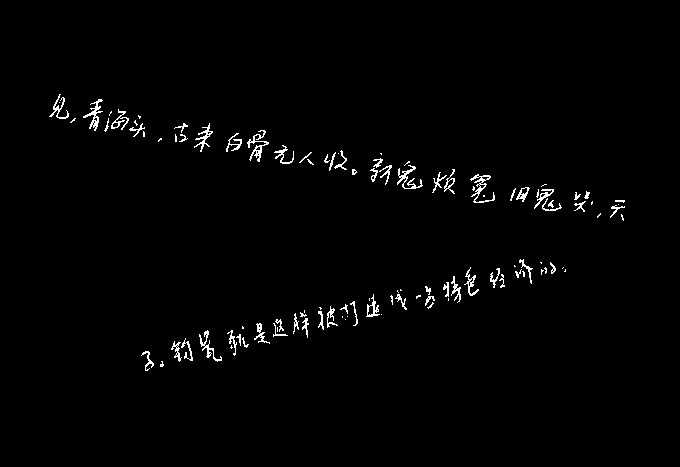 见,青海头,古来白骨无人收。新鬼烦冤旧鬼哭,天
了。钧瓷就是这样被打造成一名特色经济的。